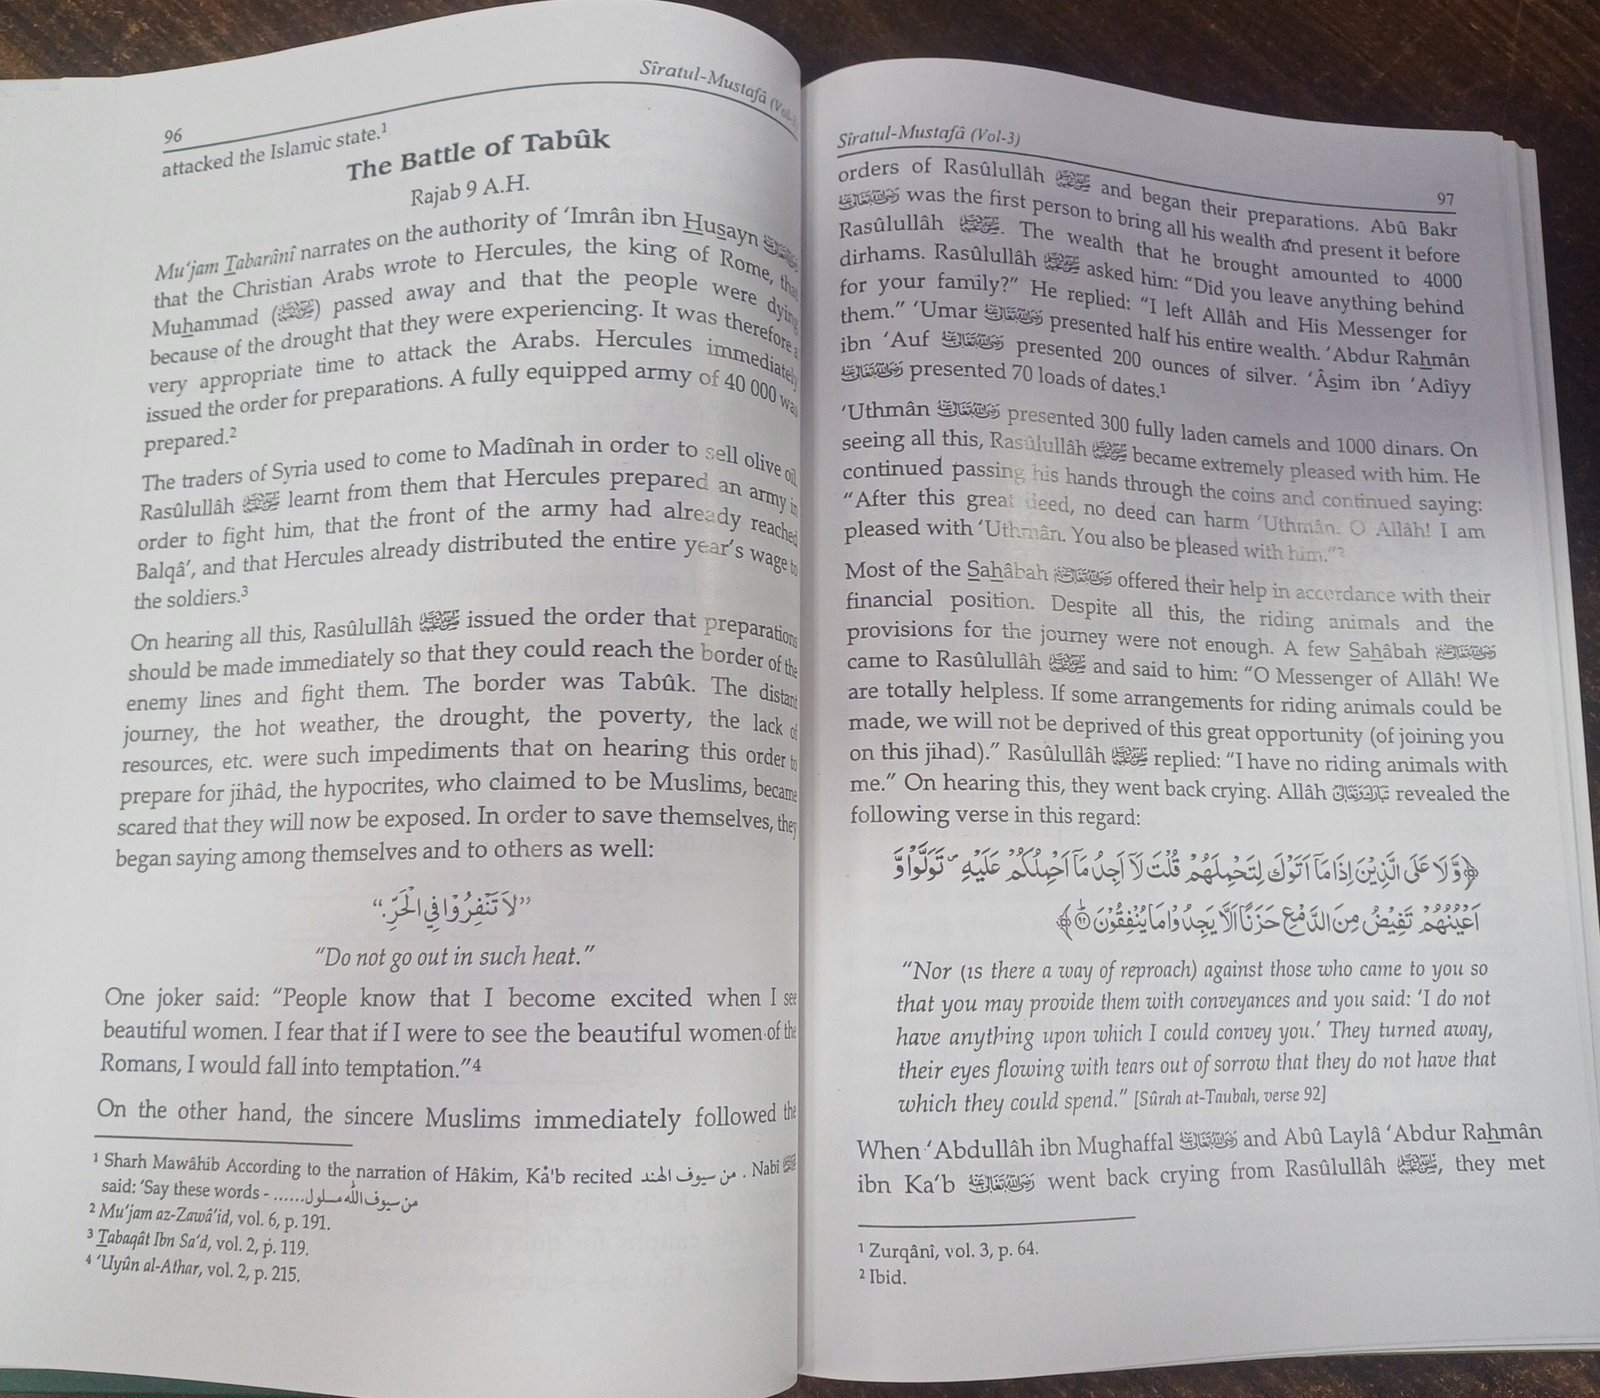 96
Sîratul-Mustafâ (Vol-3)
attacked the Islamic state.1
The Battle of Tabûk
Rajab 9 A.H.
Mu‘jam Tabarânî narrates on the authority of ‘Imrân ibn Husayn
that the Christian Arabs wrote to Hercules, the king of Rome, that
Muhammad (ﷺ) passed away and that the people were dying
because of the drought that they were experiencing. It was therefore a
very appropriate time to attack the Arabs. Hercules immediately
issued the order for preparations. A fully equipped army of 40 000 was
prepared.2
The traders of Syria used to come to Madînah in order to sell olive oil.
Rasûlullâh ﷺ learnt from them that Hercules prepared an army in
order to fight him, that the front of the army had already reached
Balqâ’, and that Hercules already distributed the entire year’s wage to
the soldiers.3
On hearing all this, Rasûlullâh ﷺ issued the order that preparations
should be made immediately so that they could reach the border of the
enemy lines and fight them. The border was Tabûk. The distant
journey, the hot weather, the drought, the poverty, the lack of
resources, etc. were such impediments that on hearing this order to
prepare for jihâd, the hypocrites, who claimed to be Muslims, became
scared that they will now be exposed. In order to save themselves, they
began saying among themselves and to others as well:
”لاَ تَنْفِرُوْا فِي الْحَرِّ.“
“Do not go out in such heat.”
One joker said: “People know that I become excited when I see
beautiful women. I fear that if I were to see the beautiful women of the
Romans, I would fall into temptation.”4
On the other hand, the sincere Muslims immediately followed the
1 Sharh Mawâhib According to the narration of Hâkim, Ka'b recited من سيوف الهند . Nabî ﷺ
said: ‘Say these words - ......من سيوف الله مسلول
2 Mu‘jam az-Zawâ’id, vol. 6, p. 191.
3 Tabaqât Ibn Sa‘d, vol. 2, p. 119.
4 ‘Uyûn al-Athar, vol. 2, p. 215.
Sîratul-Mustafâ (Vol-3)
97
orders of Rasûlullâh ﷺ and began their preparations. Abû Bakr
was the first person to bring all his wealth and present it before
Rasûlullâh ﷺ. The wealth that he brought amounted to 4000
dirhams. Rasûlullâh ﷺ asked him: “Did you leave anything behind
for your family?” He replied: “I left Allâh and His Messenger for
them.” ‘Umar presented half his entire wealth. ‘Abdur Rahmân
ibn ‘Auf presented 200 ounces of silver. ‘Âsim ibn ‘Adîyy
presented 70 loads of dates.1
‘Uthmân presented 300 fully laden camels and 1000 dinars. On
seeing all this, Rasûlullâh ﷺ became extremely pleased with him. He
continued passing his hands through the coins and continued saying:
“After this great deed, no deed can harm ‘Uthmân. O Allâh! I am
pleased with ‘Uthmân. You also be pleased with him.”2
Most of the Sahâbah offered their help in accordance with their
financial position. Despite all this, the riding animals and the
provisions for the journey were not enough. A few Sahâbah
came to Rasûlullâh ﷺ and said to him: “O Messenger of Allâh! We
are totally helpless. If some arrangements for riding animals could be
made, we will not be deprived of this great opportunity (of joining you
on this jihad).” Rasûlullâh ﷺ replied: “I have no riding animals with
me.” On hearing this, they went back crying. Allâh revealed the
following verse in this regard:
﴿وَّلَا عَلَى الَّذِيْنَ اِذَا مَآ اَتَوْكَ لِتَحْمِلَهُمْ قُلْتَ لَآ اَجِدُ مَآ اَحْمِلُكُمْ عَلَيْهِ ۪ تَوَلَّوْا وَّ
اَعْيُنُهُمْ تَفِيْضُ مِنَ الدَّمْعِ حَزَنًا اَلَّا يَجِدُوْا مَا يُنْفِقُوْنَ ۝٩٢﴾
“Nor (is there a way of reproach) against those who came to you so
that you may provide them with conveyances and you said: ‘I do not
have anything upon which I could convey you.’ They turned away,
their eyes flowing with tears out of sorrow that they do not have that
which they could spend.” [Sûrah at-Taubah, verse 92]
When ‘Abdullâh ibn Mughaffal and Abû Laylâ ‘Abdur Rahmân
ibn Ka‘b went back crying from Rasûlullâh ﷺ, they met
1 Zurqânî, vol. 3, p. 64.
2 Ibid.